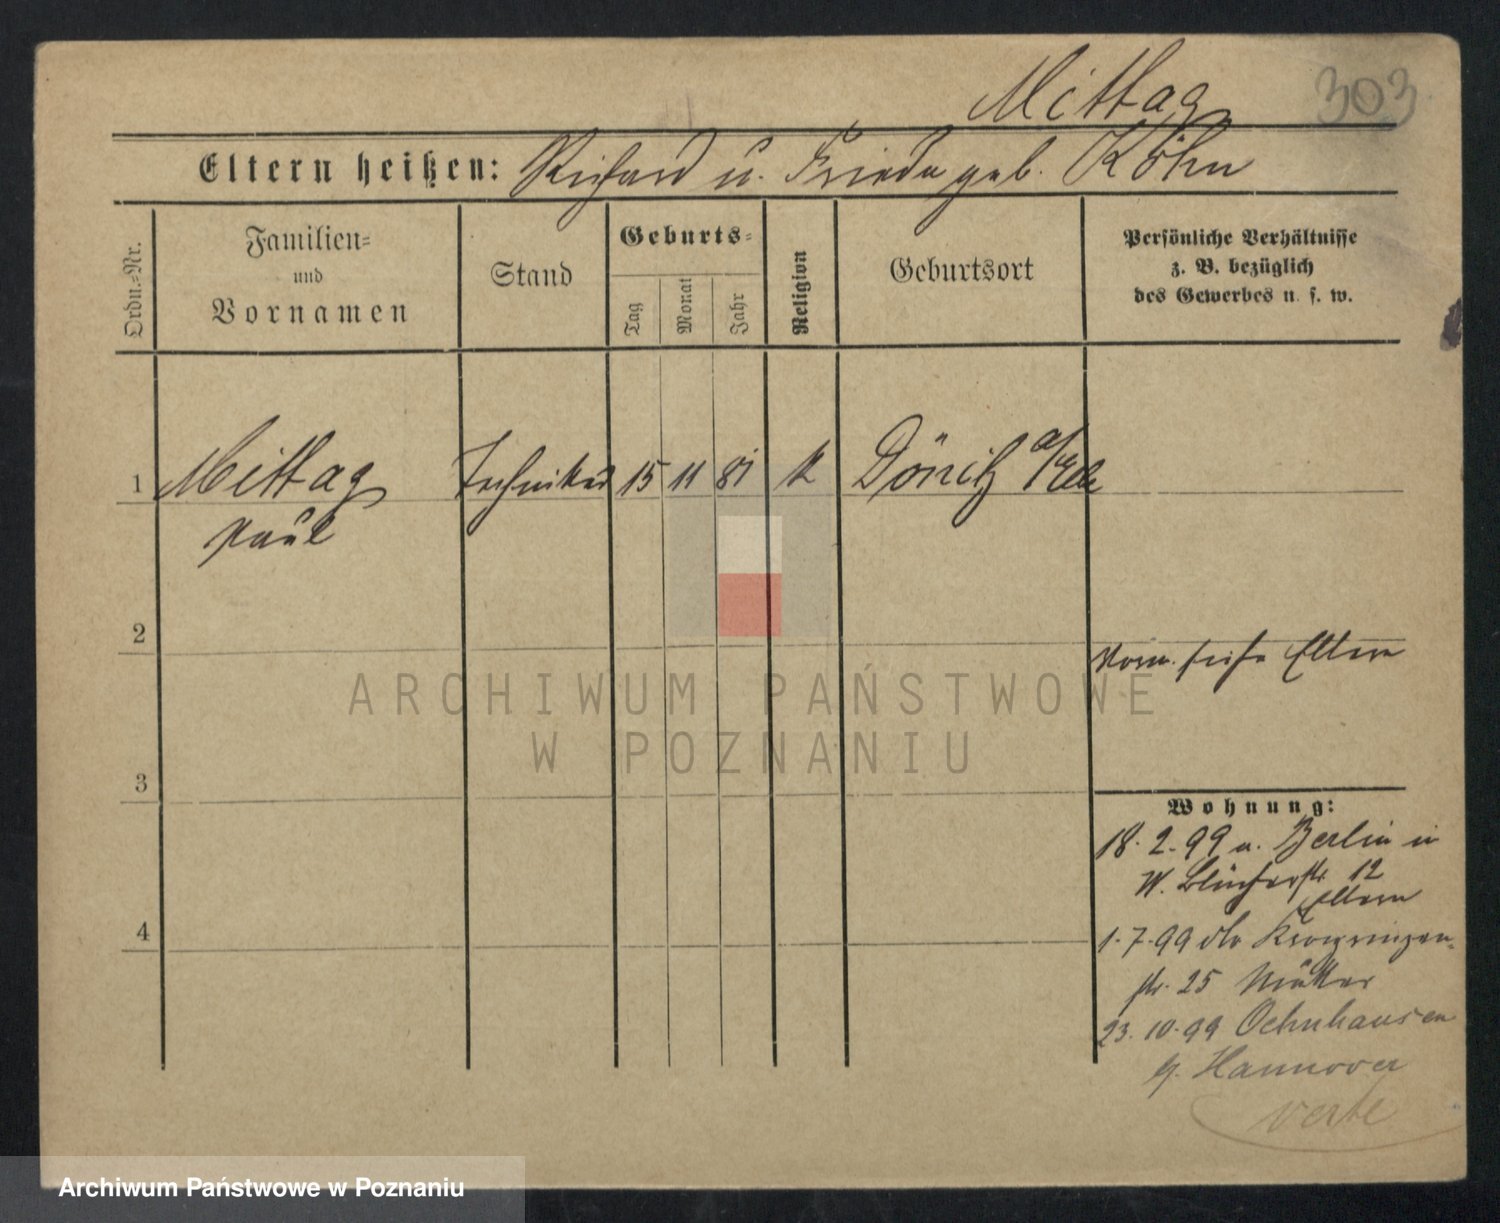 Mittag 303
Eltern heißen: Richard u. Frieda geb. Köhn
Ordn.-Nr.
Familien-
und
Vornamen
Stand
Geburts-
Tag
Monat
Jahr
Religion
Geburtsort
Persönliche Verhältnisse
z. B. bezüglich
des Gewerbes u. s. w.
1 Mittag Techniker 15 11 81 k Dönitz a/Elbe
Paul
2
Vorm. siehe Eltern
3
Wohnung:
18. 2. 99 u. Berlin in
W. Blücherstr 12
Eltern
4
1. 7. 99 Kronprinzen-
str. 25 Mutter
23. 10. 99 Oehnhausen
b. Hannover
verte
ARCHIWUM PAŃSTWOWE
W POZNANIU
Archiwum Państwowe w Poznaniu